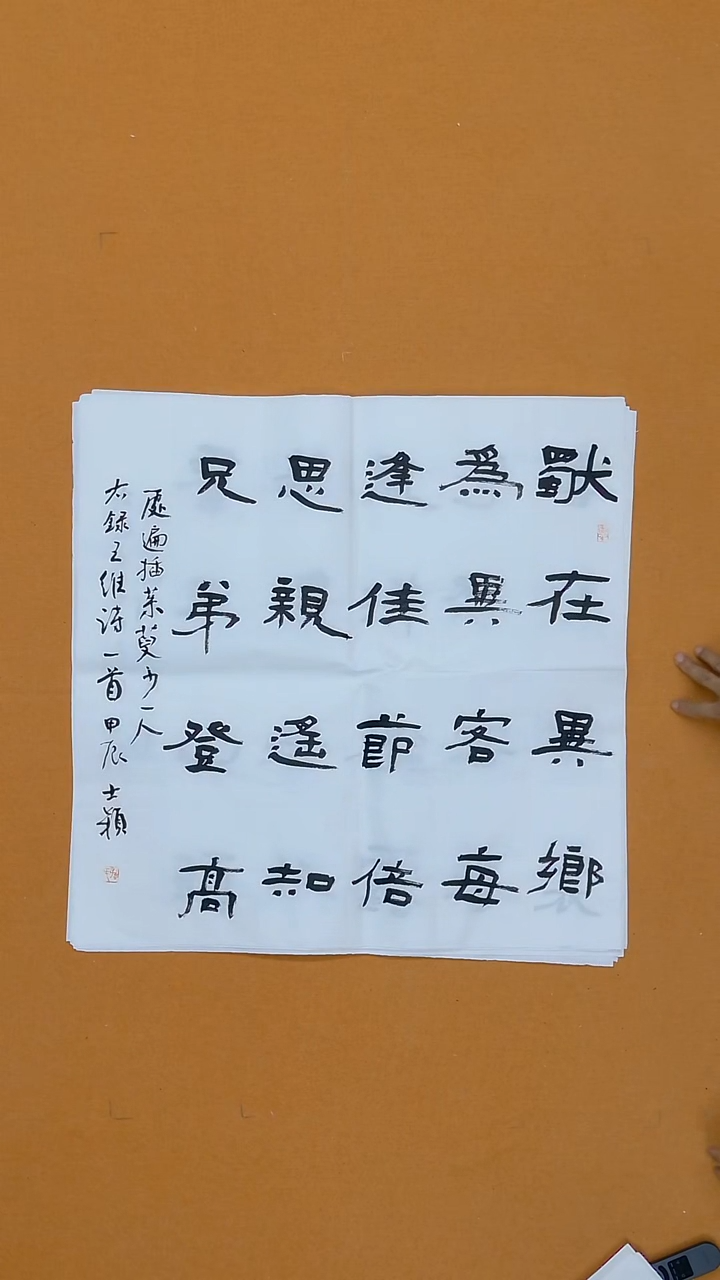 獨在異鄉
爲異客每
逢佳節倍
思親遙知
兄弟登高
處遍插茱萸少一人
右録王維詩一首甲辰士穎